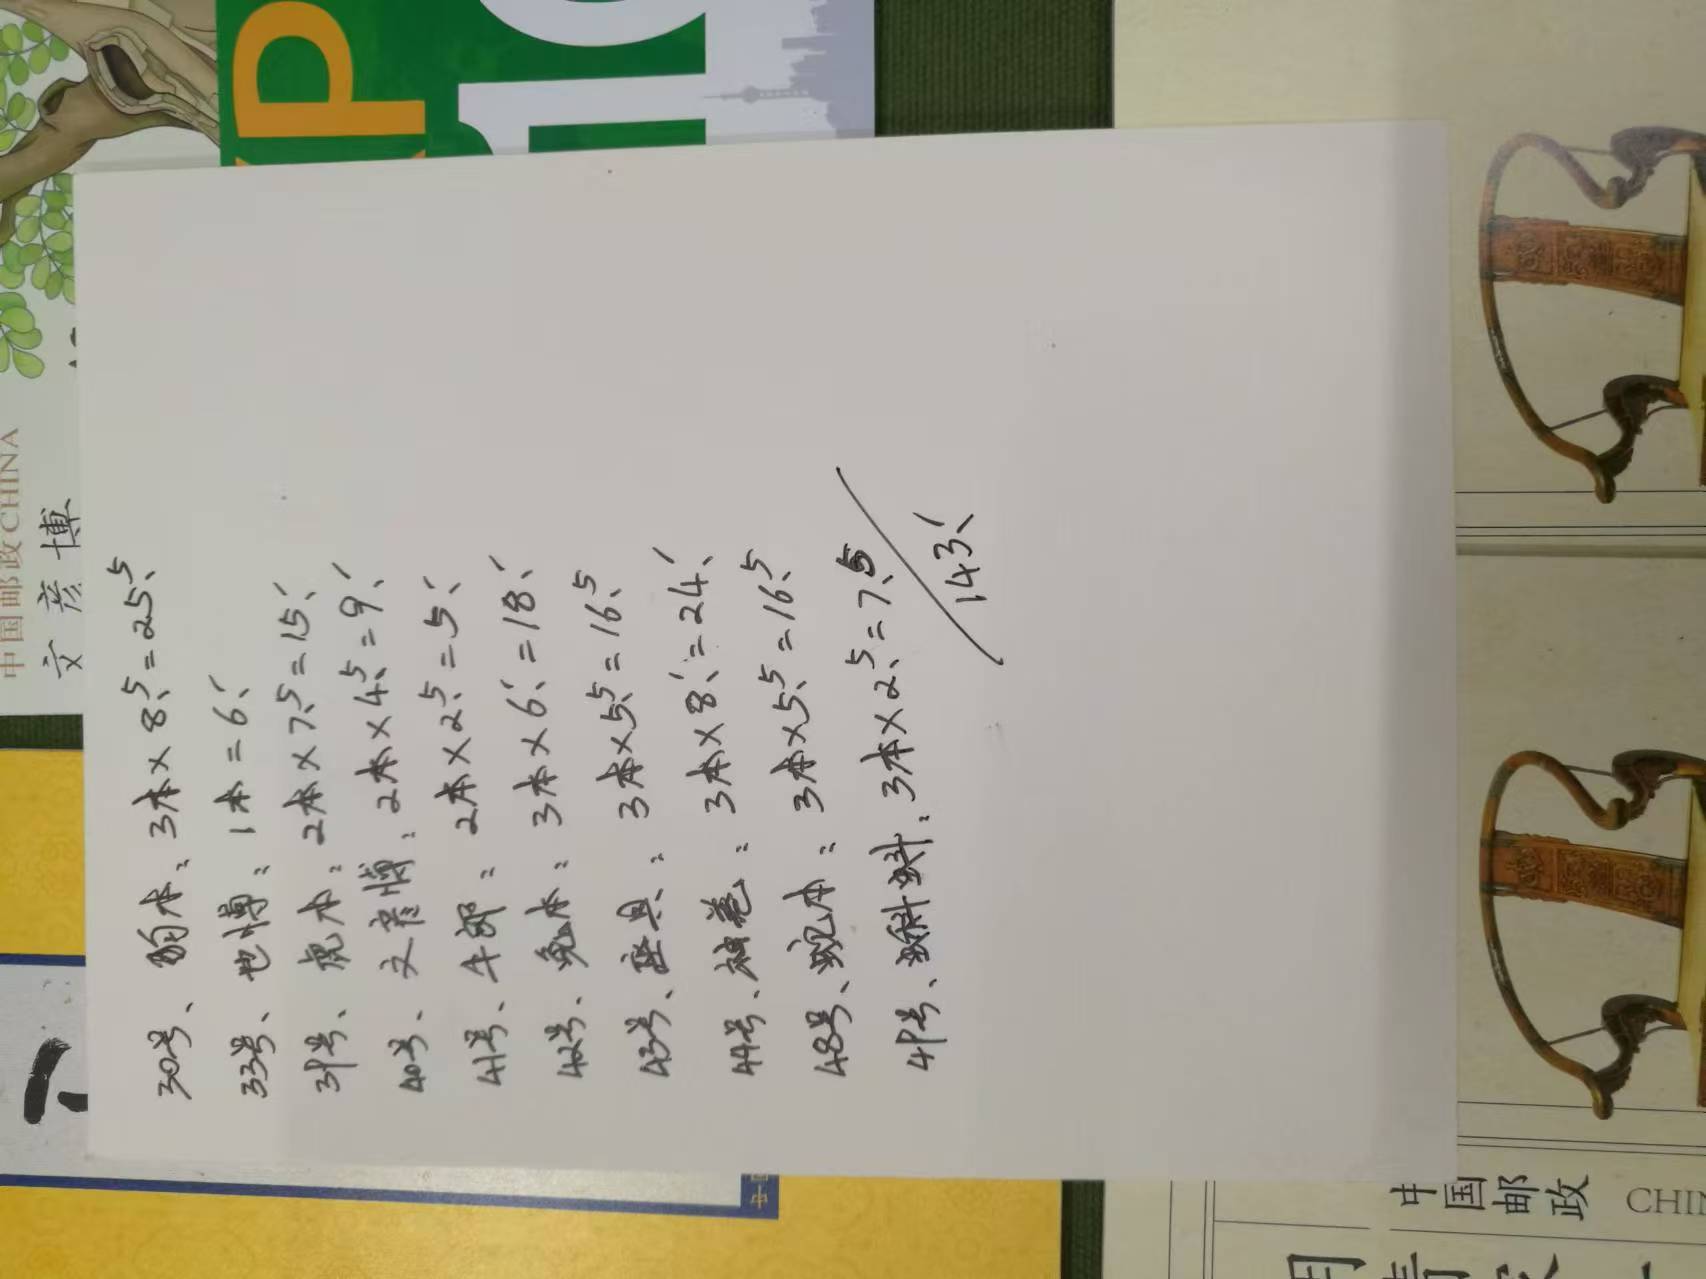 30号、豹本：3本×8.5=25.5
33号、也博：1本=6.
39号、虎本：2本×7.5=15.
40号、文彦博：2本×4.5=9.
41号、牛郵：2本×2.5=5.
42号、兔本：3本×6.=18.
43号、座具：3本×5.5=16.5
44号、神卷：3本×8.=24.
48号、蛇本：3本×5.5=16.5
49号、蝌蚪：3本×2.5=7.5
143.
中国邮政CHINA
文彦博
中国邮政 CHIN